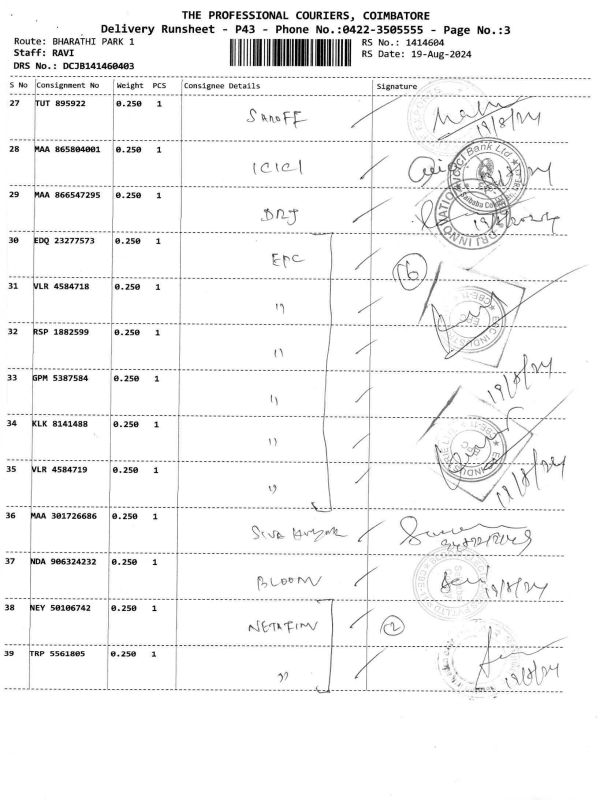 THE PROFESSIONAL COURIERS, COIMBATORE
Delivery Runsheet - P43 - Phone No.:0422-3505555 - Page No.:3
Route: BHARATHI PARK 1
RS No.: 1414604
Staff: RAVI
RS Date: 19-Aug-2024
DRS No.: DCJB141460403
S No Consignment No Weight PCS Consignee Details Signature
27 TUT 895922 0.250 1 SanoFF
19/8/24
28 MAA 865804001 0.250 1 ICICI
ICICI Bank Ltd.
29 MAA 866547295 0.250 1 DRJ
DRJ INNOVATION
30 EDQ 23277573 0.250 1 EPC
6
31 VLR 4584718 0.250 1 ")
32 RSP 1882599 0.250 1 ")
33 GPM 5387584 0.250 1 ")
19/8/24
34 KLK 8141488 0.250 1 ")
35 VLR 4584719 0.250 1 ")
19/8/24
36 MAA 301726686 0.250 1 Siva
37 NDA 906324232 0.250 1 BLOOM
19/8/24
38 NEY 50106742 0.250 1 NETAFIM
2
39 TRP 5561805 0.250 1 ")
19/8/24